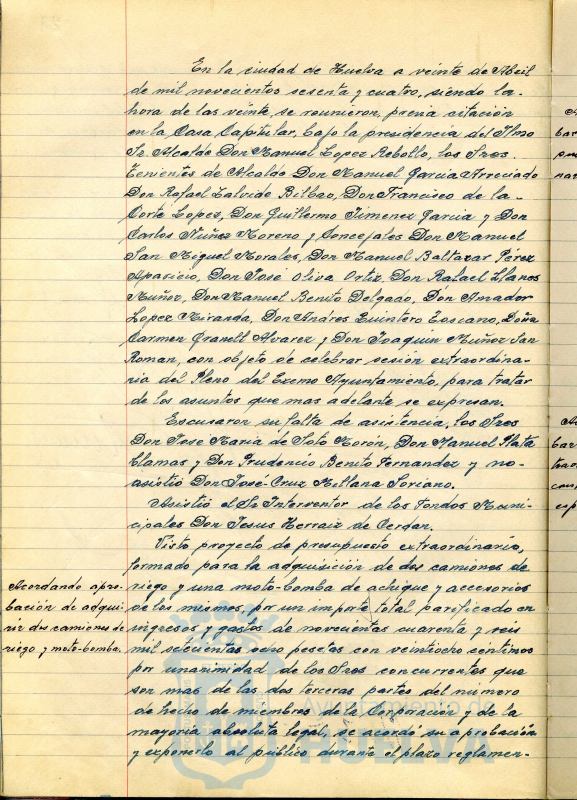 En la ciudad de Huelva a veinte de Abril
de mil novecientos sesenta y cuatro, siendo la-
hora de las veinte se reunieron, previa citación
en la Casa Capitular, bajo la presidencia del Ilmo
Sr. Alcalde Don Manuel Lopez Rebollo, los Sres.
Tenientes de Alcalde Don Manuel Garcia Arreciado
Don Rafael Salvide Bilbao, Don Francisco de la-
Corte Lopez, Don Guillermo Jimenez Garcia y Don
Carlos Nuñez Moreno y Concejales Don Manuel
San Miguel Morales, Don Manuel Baltazar Pérez
Aparicio, Don José Oliva Ortiz, Don Rafael Llanes
Muñoz, Don Manuel Benito Delgado, Don Amador
Lopez Miranda, Don Andres Quintero Toscano, Doña
Carmen Granell Alvarez y Don Joaquin Muñoz San
Roman, con objeto de celebrar sesión extraordina-
ria del Pleno del Excmo Ayuntamiento, para tratar
de los asuntos que mas adelante se expresan.
Escusaron su falta de asistencia, los Sres
Don Jose Maria de Soto Morón, Don Manuel Plata
Llamas y Don Prudencio Benito Fernandez y no-
asistió Don José-Cruz Soriano.
Asistió el Sr Interventor de los Fondos Muni-
cipales Don Jesus Herraiz de Cerdan.
Visto proyecto de presupuesto extraordinario,
formado para la adquisición de dos camiones de
Acordando apro-
bación de adqui-
rir dos camiones de
riego y moto-bomba.
riego y una moto-bomba de achique y accesorios
de los mismos, por un importe total parificado en
ingresos y gastos de novecientas cuarenta y seis
mil setecientas ocho pesetas con veintiocho centimos
por unanimidad de los Sres concurrentes que
son mas de las dos terceras partes del numero
de hecho de miembros de la Corporación y de la
mayoria absoluta legal, se acordó su aprobación
y exponerlo al publico durante el plazo reglamen-
Ayuntamiento de
HUELVA